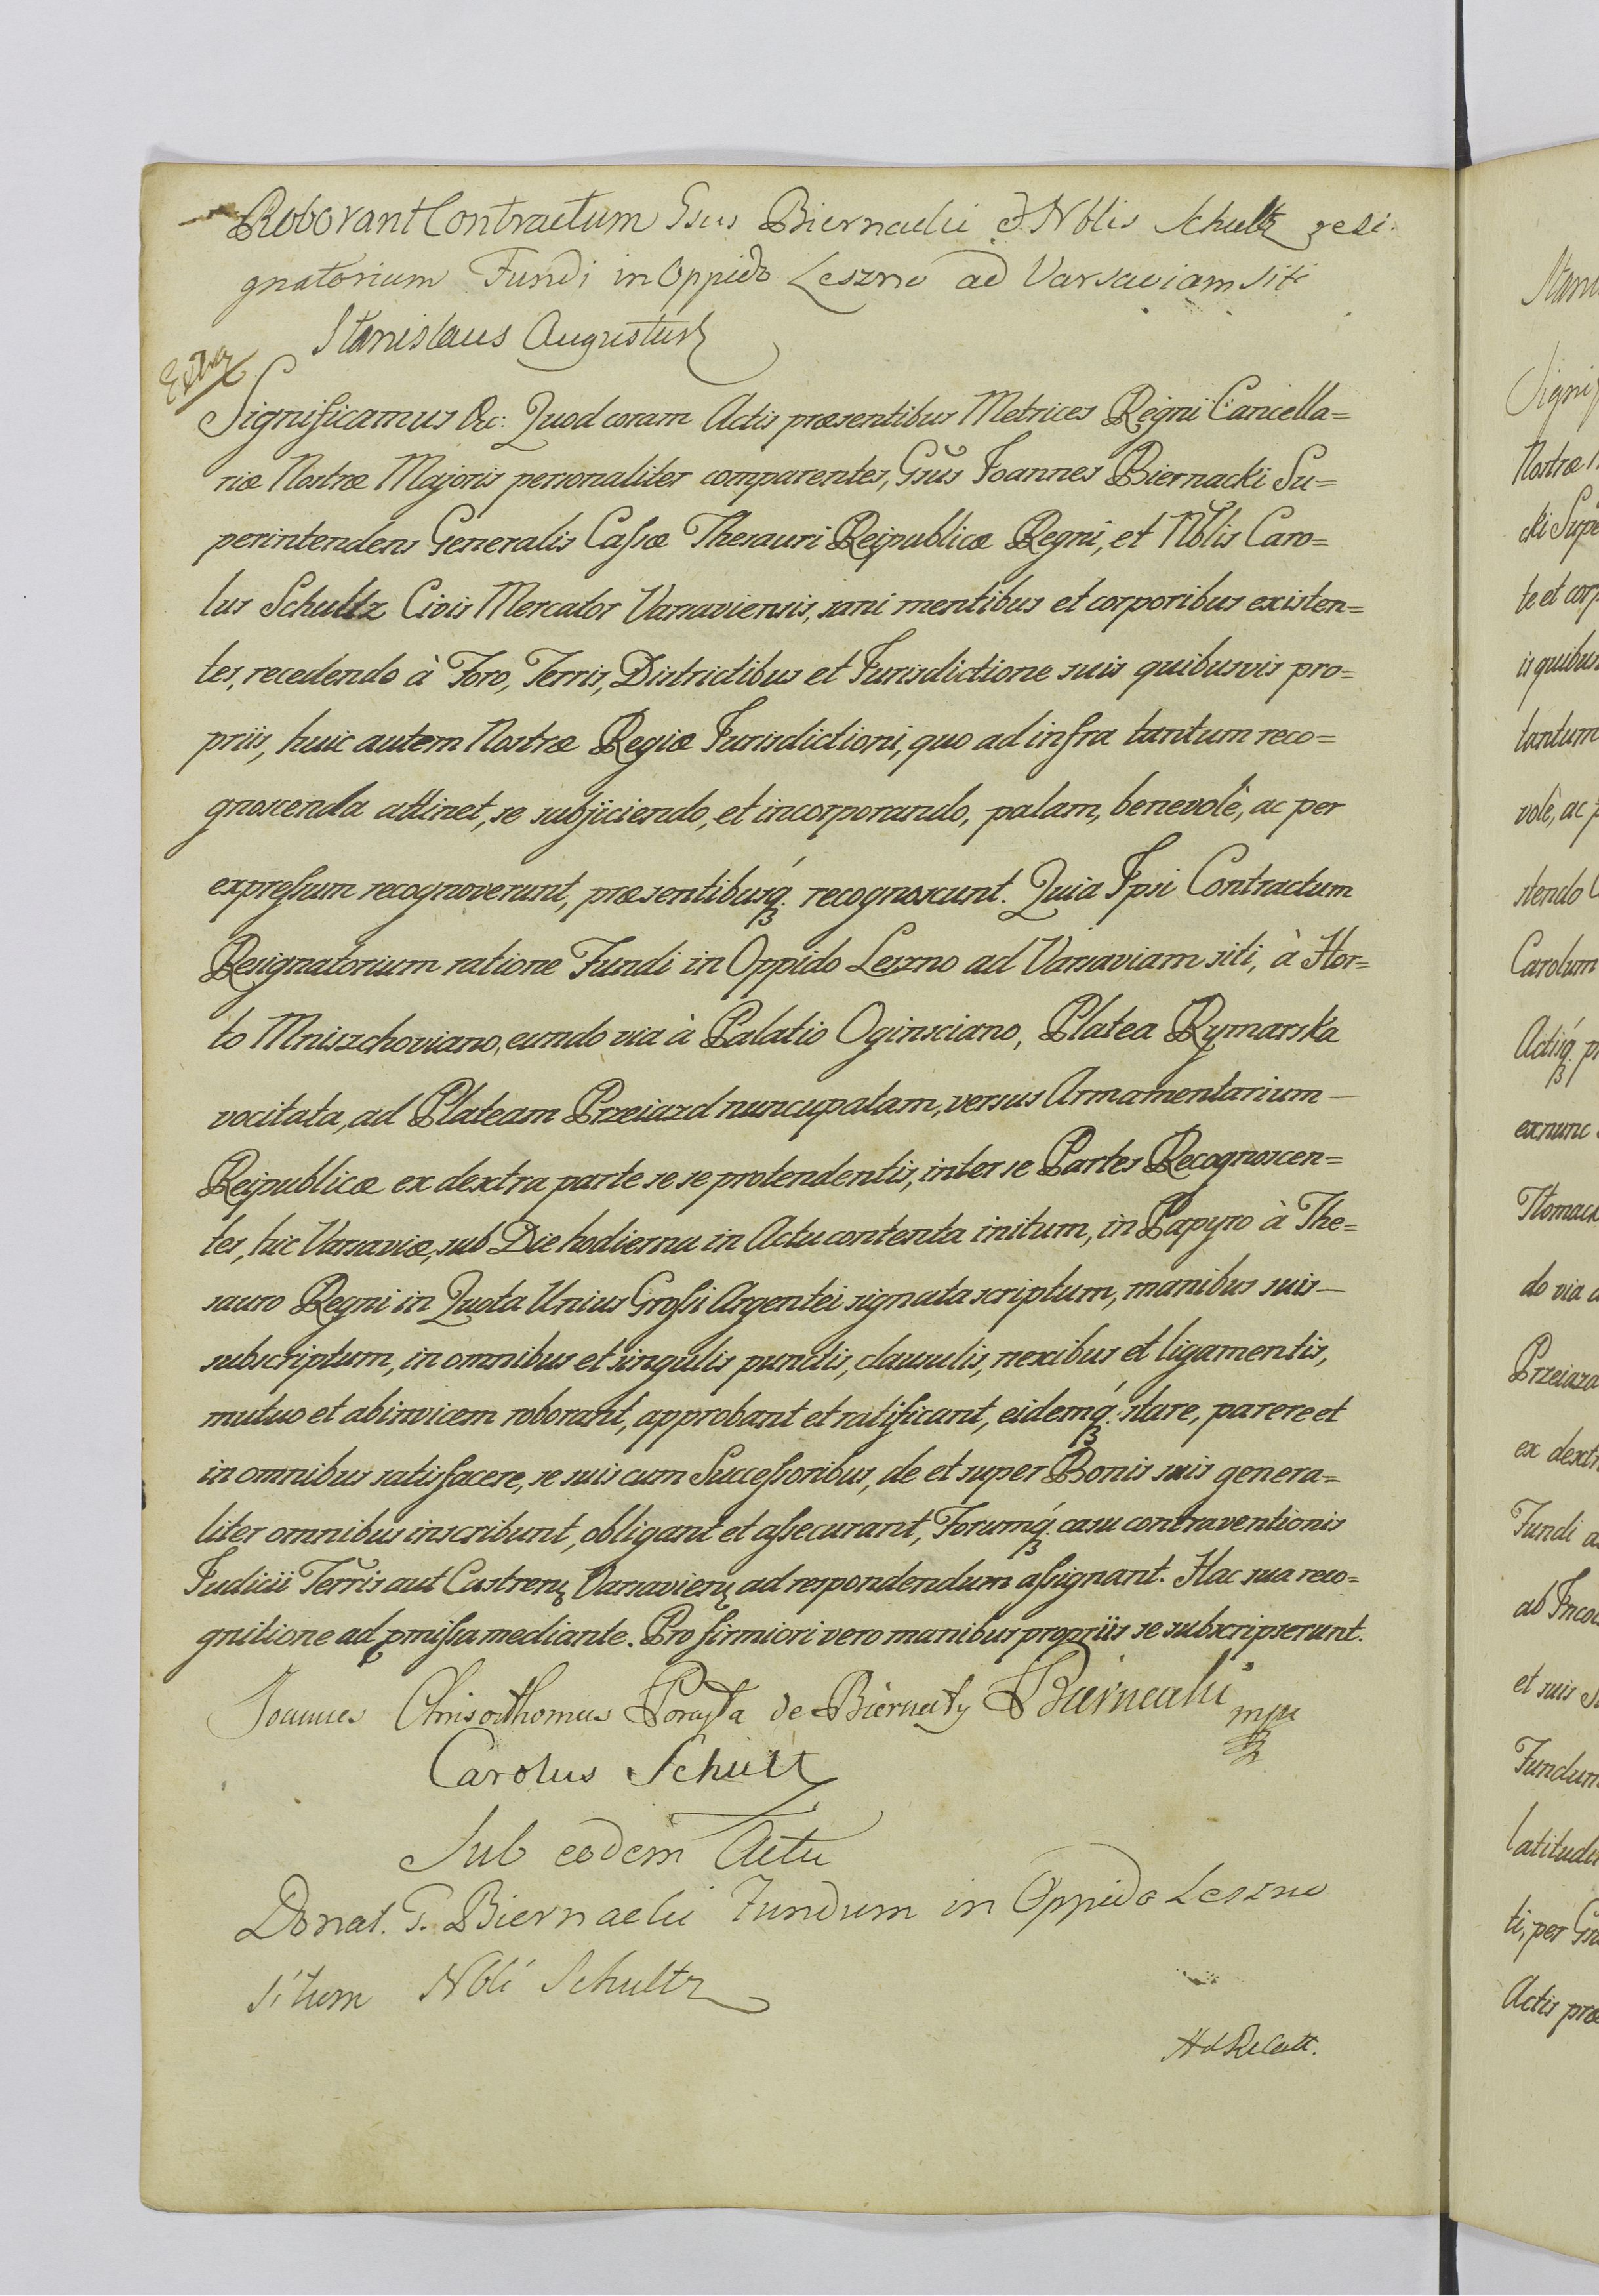 Roborant Contractum Gsus Biernacki & Nblis Schultz resi-
gnatorium Fundi in Oppido Leszno ad Varsaviam siti
Stanislaus Augustus
Extr
Significamus &c: Quod coram Actis præsentibus Metrices Regni Cancella=
riæ Nostræ Majoris personaliter comparentes, Gsūs Ioannes Biernacki Su=
perintendens Generalis Cassæ Thesauri Reipublicæ Regni, et Nblis Caro=
lus Schultz Civis Mercator Varsaviensis, sani mentibus et corporibus existen=
tes, recedendo à Foro, Terris, Districtibus et Iurisdictione suis quibusvis pro=
priis, huic autem Nostræ Regiæ Iurisdictioni, quo ad infra tantum reco=
gnoscenda attinet, se subjiciendo, et incorporando, palam, benevolè, ac per
expressum recognoverunt, præsentibusq́ recognoscunt. Quia Ipsi Contractum
Resignatorium ratione Fundi in Oppido Leszno ad Varsaviam siti, à Hor=
to Mniszchoviano, eundo via à Palatio Oginsciano, Platea Rymarska
vocitata, ad Plateam Przeiazd nuncupatam, versus Armamentarium —
Reipublicæ ex dextra parte se se protendentis, inter se Partes Recognoscen=
tes, hic Varsaviæ, sub Die hodierna in Actu contenta initum, in Papyro à The=
sauro Regni in Quota Unius Grossi Argentei signata scriptum, manibus suis —
subscriptum, in omnibus et singulis punctis, clausulis, nexibus et ligamentis,
mutuo et abinvicem roborant, approbant et ratificant, eidemq́ stare, parere et
in omnibus satisfacere, se suis cum Successoribus, de et super Bonis suis genera=
liter omnibus inscribunt, obligant et assecurant, Forumq́ casu contraventionis
Iudicii Terris aut Castrenẓ Varsavienẓ ad respondendum assignant. Hac sua reco=
gnitione ad pmissa mediante. Pro firmiori vero manibus propriis se subscripserunt.
Joannes Chrisosthomus Porayta de Biernaty Biernacki mpu
Carolus Schultz
Sub eodem Actu
Donat. G. Biernacki Fundum in Oppido Leszno
situm Nbli Schultz
Stani
Signif
Nostræ
cki Supe
te et corp
is quibus
tantum
volè, ac p
stendo
Carolum
Actisq́ pr
exnunc
Tłomack
do via a
Przeiazd
ex dextr
Fundi a
ab Incol
et suis S
Fundum
latitudi
ti, per Gn
Actis præ